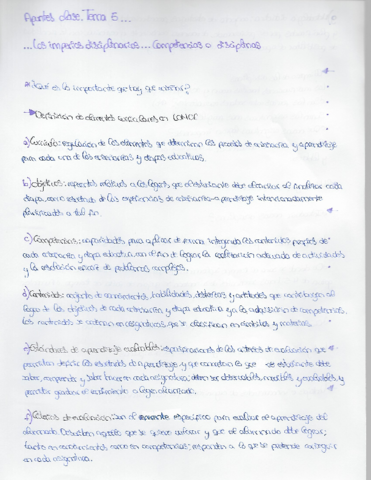 Apuntes clase. Tema 5...
...Los imperios disciplinarios... Competencias o disciplinas
¿Qué es lo importante que hay que enseñar?
Definición de elementos curriculares en LOMCE
a) Currículo: regulación de los elementos que determinan los procesos de enseñanza y aprendizaje
para cada una de las enseñanzas y etapas educativas.
b) Objetivos: referentes relativos a los logros, que el estudiante debe alcanzar al finalizar cada
etapa, como resultado de las experiencias de enseñanza-aprendizaje intencionadamente
planificadas a tal fin.
c) Competencias: capacidades para aplicar de forma integrada los contenidos propios de
cada enseñanza y etapa educativa, con el fin de lograr la realización adecuada de actividades
y la resolución eficaz de problemas complejos.
d) Contenidos: conjunto de conocimientos, habilidades, destrezas y actitudes que contribuyen al
logro de los objetivos de cada enseñanza y etapa educativa y a la adquisición de competencias.
Los contenidos se ordenan en asignaturas, que se clasifican en materias y
e) Estándares de aprendizaje evaluables: especificaciones de los criterios de evaluación que
permiten definir los resultados de aprendizaje y que concretan lo que el estudiante debe
saber, comprender y saber hacer en cada asignatura; deben ser observables, medibles y evaluables y
permitir graduar el rendimiento o logro alcanzado.
f) Criterios de evaluación: son el referente específico para evaluar el aprendizaje del
alumnado. Describen aquello que se quiere valorar y que el alumnado debe lograr,
tanto en conocimientos como en competencias; responden a lo que se pretende conseguir
en cada asignatura.